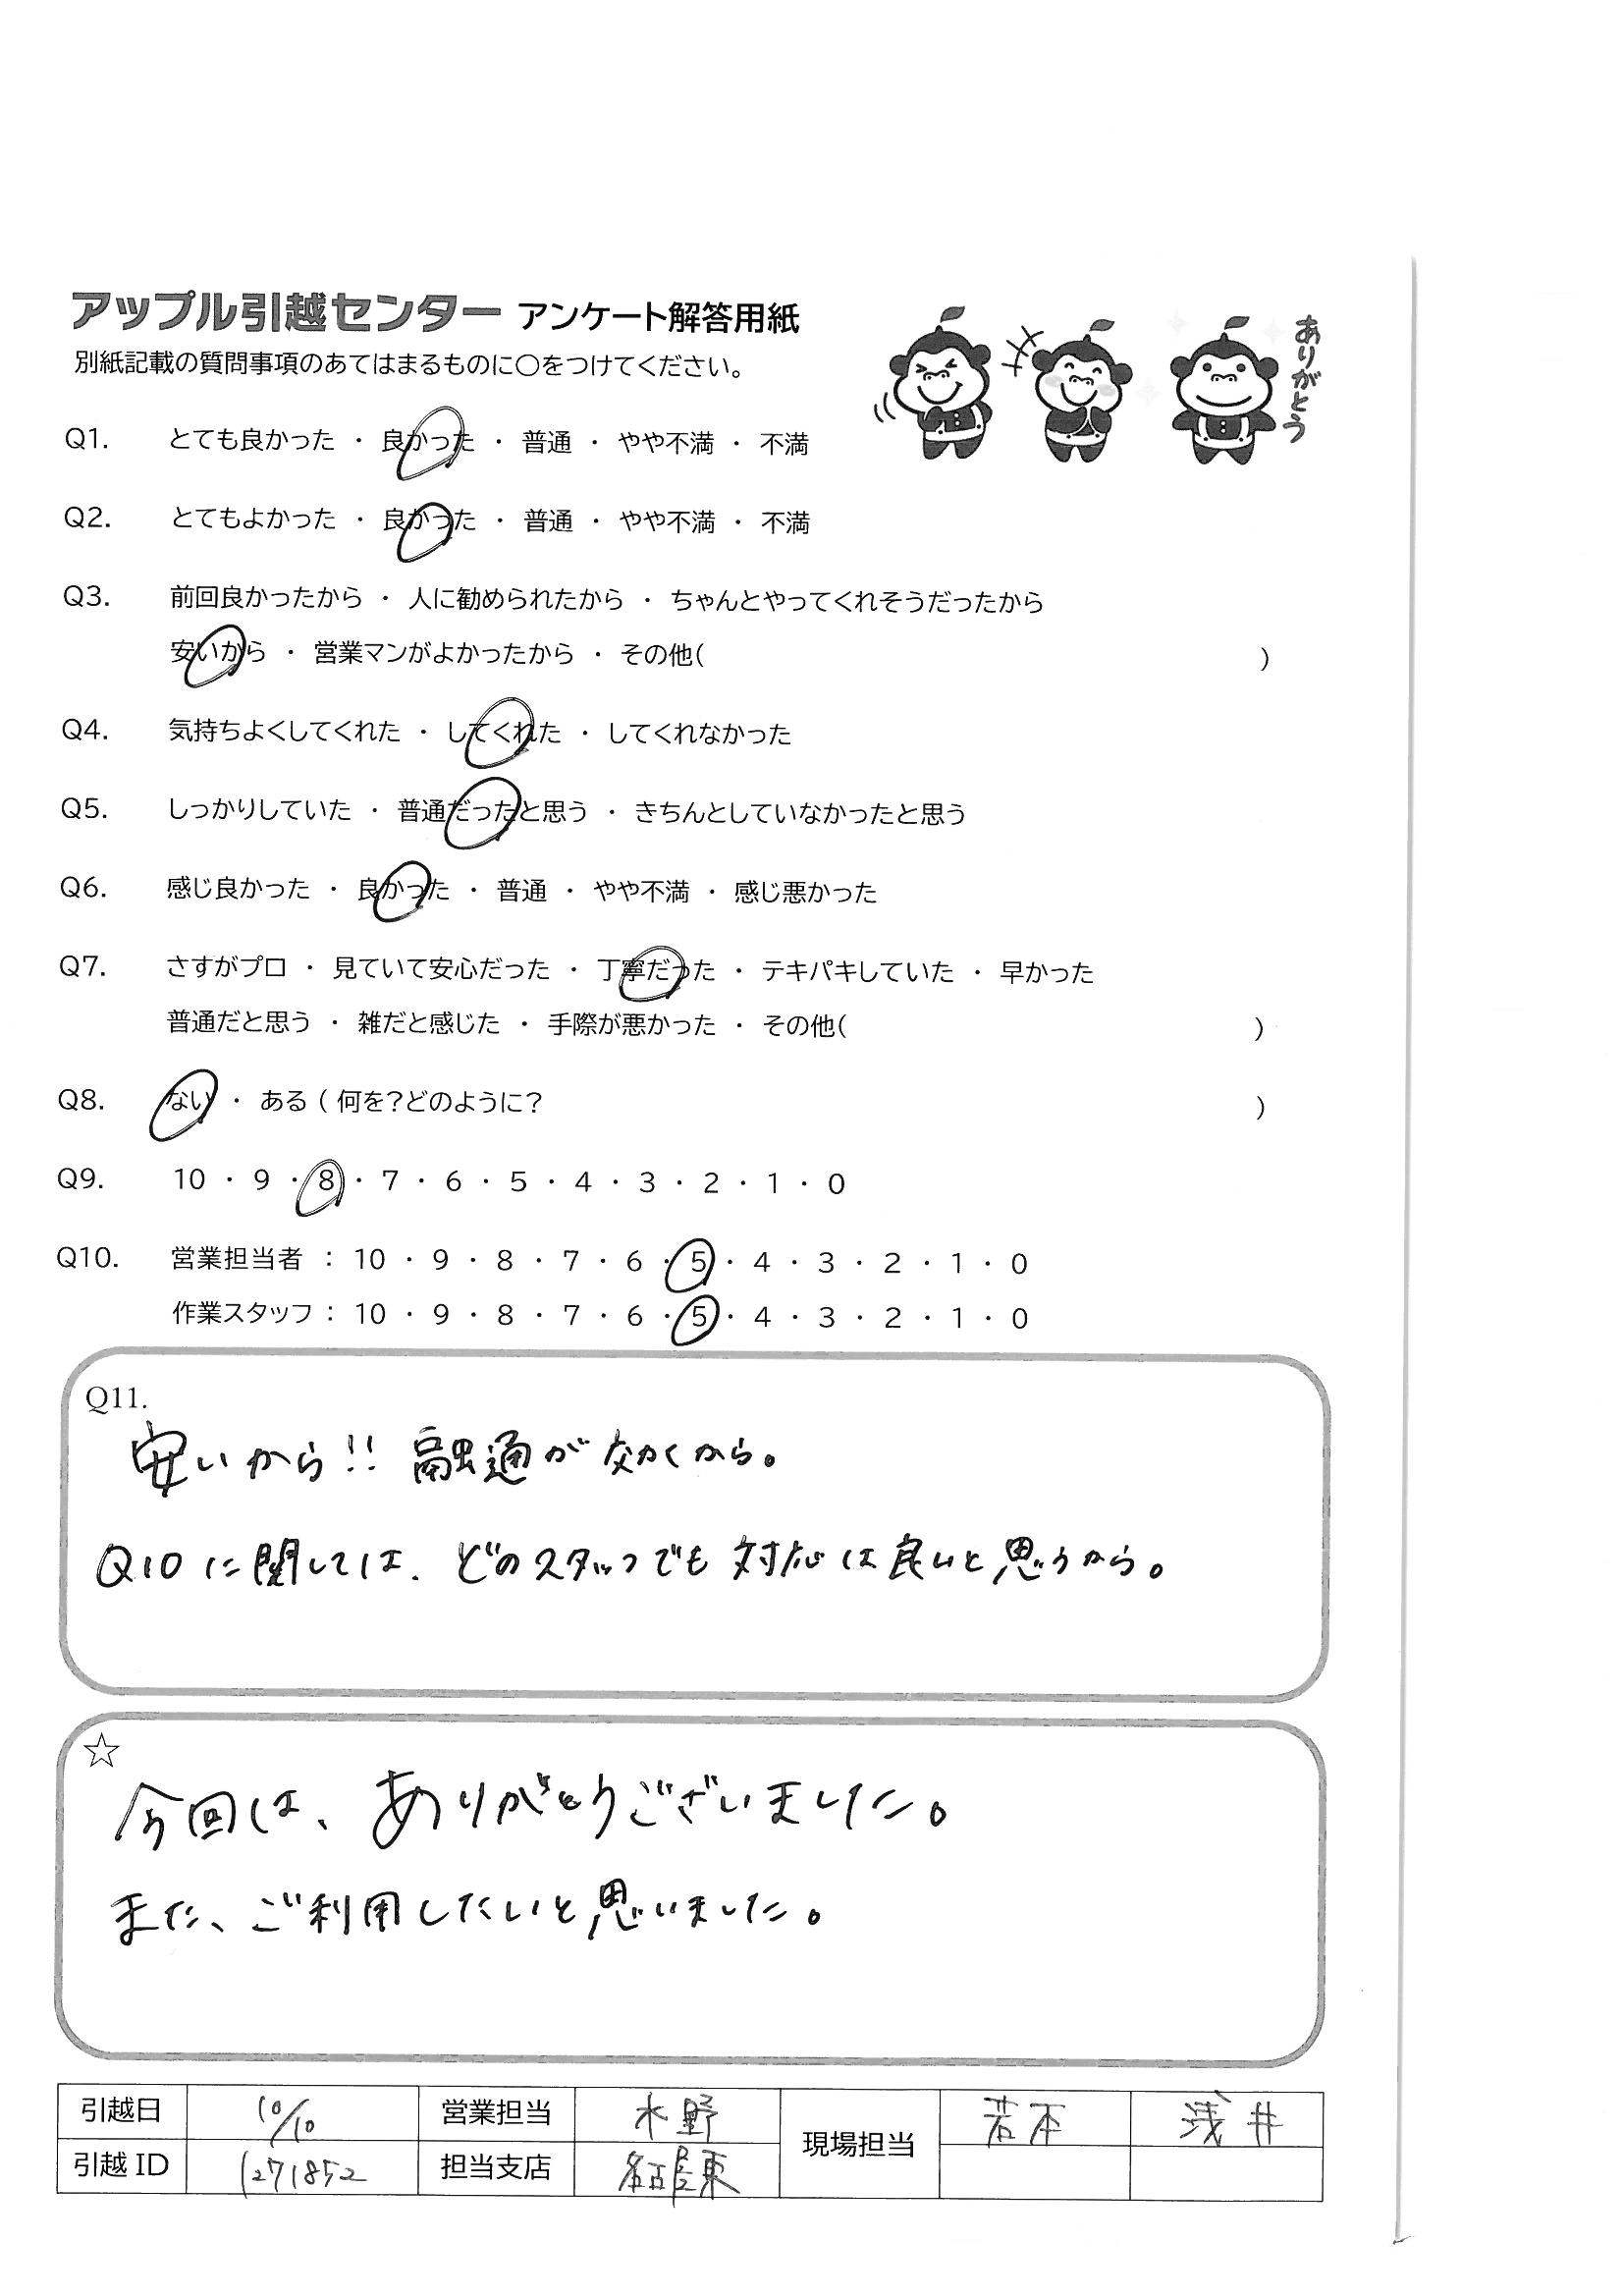 アップル引越センター アンケート解答用紙
別紙記載の質問事項のあてはまるものに〇をつけてください。
ありがとう
Q1. とても良かった ・ 良かった ・ 普通 ・ やや不満 ・ 不満
Q2. とてもよかった ・ 良かった ・ 普通 ・ やや不満 ・ 不満
Q3. 前回良かったから ・ 人に勧められたから ・ ちゃんとやってくれそうだったから
安いから ・ 営業マンがよかったから ・ その他( )
Q4. 気持ちよくしてくれた ・ してくれた ・ してくれなかった
Q5. しっかりしていた ・ 普通だったと思う ・ きちんとしていなかったと思う
Q6. 感じ良かった ・ 良かった ・ 普通 ・ やや不満 ・ 感じ悪かった
Q7. さすがプロ ・ 見ていて安心だった ・ 丁寧だった ・ テキパキしていた ・ 早かった
普通だと思う ・ 雑だと感じた ・ 手際が悪かった ・ その他( )
Q8. ない ・ ある ( 何を?どのように? )
Q9. 10 ・ 9 ・ 8 ・ 7 ・ 6 ・ 5 ・ 4 ・ 3 ・ 2 ・ 1 ・ 0
Q10. 営業担当者 : 10 ・ 9 ・ 8 ・ 7 ・ 6 ・ 5 ・ 4 ・ 3 ・ 2 ・ 1 ・ 0
作業スタッフ : 10 ・ 9 ・ 8 ・ 7 ・ 6 ・ 5 ・ 4 ・ 3 ・ 2 ・ 1 ・ 0
Q11.
安いから!! 融通が効くから。
Q10に関しては、どのスタッフでも対応は良いと思うから。
☆
今回は、ありがとうございました。
また、ご利用したいと思いました。
引越日 10/10 営業担当 水野 現場担当 若本 浅井
引越ID 1271852 担当支店 名古屋東